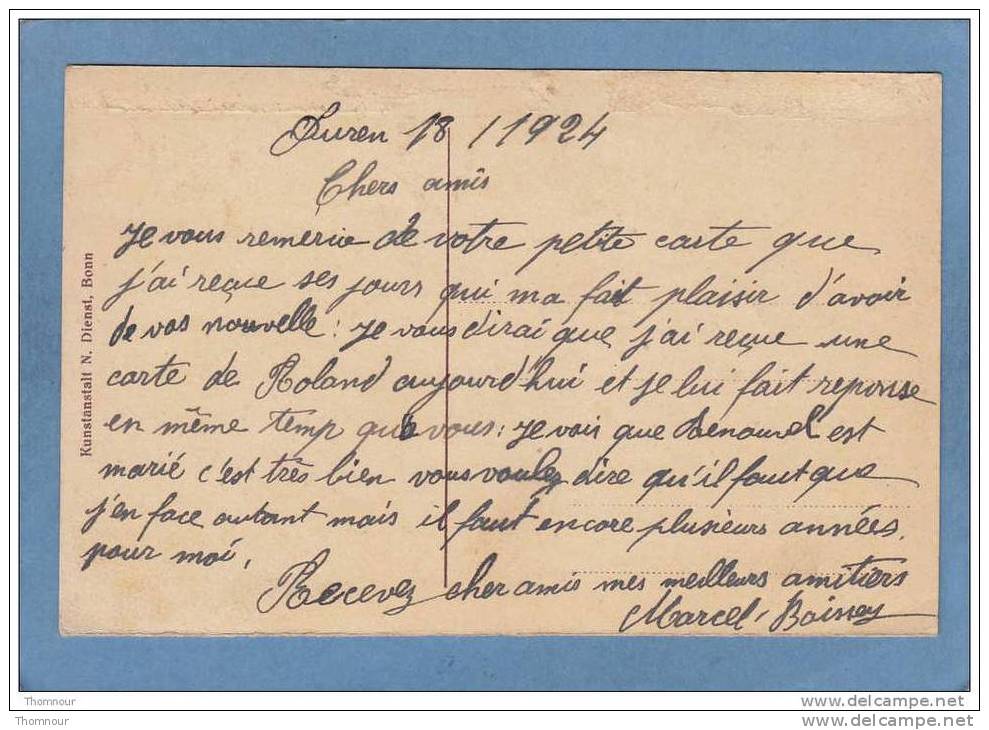 Duren 18 / 1924
Chers amis
Je vous remercie de votre petite carte que
j'ai reçue ses jours qui ma fait plaisir d'avoir
de vos nouvelle : je vous dirai que j'ai reçue une
carte de Roland aujourd'hui et je lui fait reponse
en même temp que vous : je vois que est
marié c'est très bien vous voulez dire qu'il faut que
j'en face autant mais il faut encore plusieurs années.
pour moi.
Recevez cher amis mes meilleurs amitiers
Marcel
Kunstanstalt N. Dienst, Bonn
Thomnour
www.delcampe.net
Thomnour
www.delcampe.net